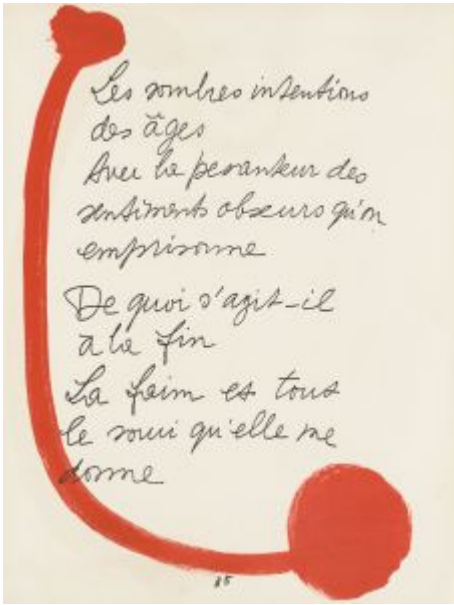 Les sombres intentions
des âges
Avec la pesanteur des
sentiments obscurs qu'on
emprisonne
De quoi s'agit-il
à la fin
La faim et tous
le souci qu'elle me
donne
85